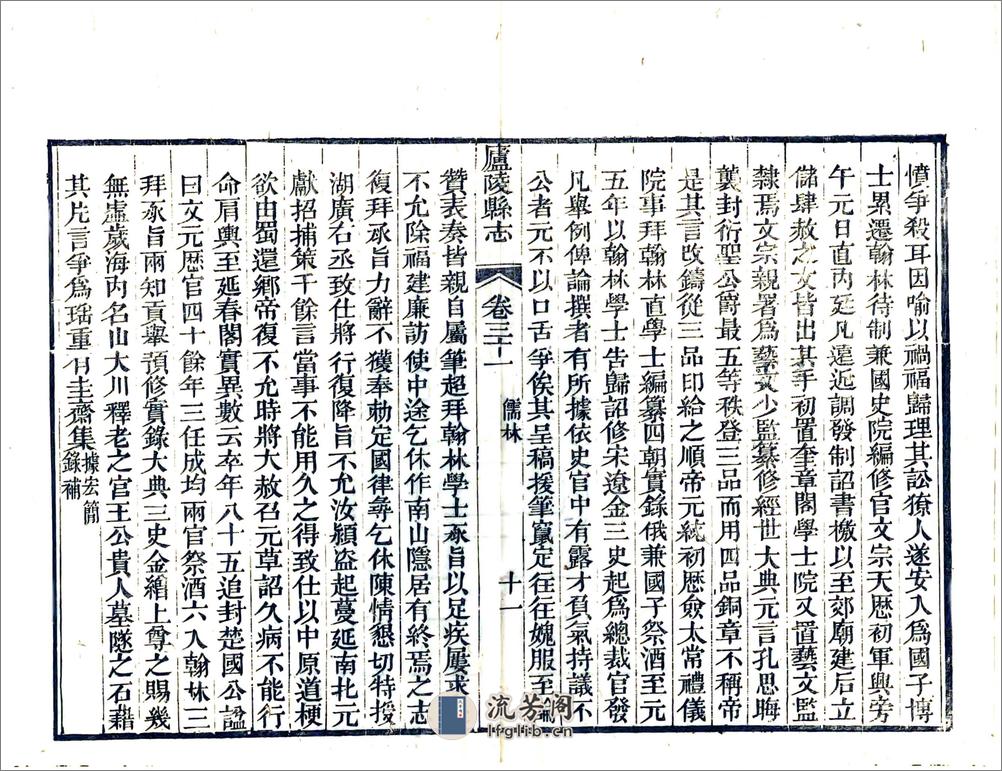 憤爭殺耳因喻以禍福歸理其訟獠人遂安入爲國子博
士累遷翰林待制兼國史院編修官文宗天歷初軍興旁
午元日直內廷凡遠近調發制詔書檄以至郊廟建后立
儲肆赦之文皆出其手初置奎章閣學士院又置藝文監
隸焉文宗親署爲藝文少監纂修經世大典元言孔思晦
襲封衍聖公爵最五等秩登三品而用四品銅章不稱帝
是其言改鑄從三品印給之順帝元統初歷僉太常禮儀
院事拜翰林直學士編纂四朝實錄俄兼國子祭酒至元
五年以翰林學士告歸詔修宋遼金三史起爲總裁官發
凡舉例俾論撰者有所據依史官中有露才負氣持議不
公者元不以口舌爭俟其呈稿援筆竄定往往媿服至
廬陵縣志
卷三十一
儒林
十一
贊表奏皆親自屬筆超拜翰林學士承旨以足疾屢求
不允除福建廉訪使中途乞休作南山隱居有終焉之志
復拜承旨力辭不獲奉勅定國律尋乞休陳情懇切特授
湖廣右丞致仕將行復降旨不允汝潁盜起蔓延南北元
獻招捕策千餘言當事不能用久之得致仕以中原道梗
欲由蜀還鄉帝復不允時將大赦召元草詔久病不能行
命肩輿至延春閣實異數云卒年八十五追封楚國公諡
曰文元歷官四十餘年三任成均兩官祭酒六入翰林三
拜承旨兩知貢舉預修實錄大典三史金繒上尊之賜幾
無虛歲海內名山大川釋老之宮王公貴人墓隧之石藉
其片言爭爲瑶重有圭齋集據宏簡
錄補
流芳閣
lfglib.cn